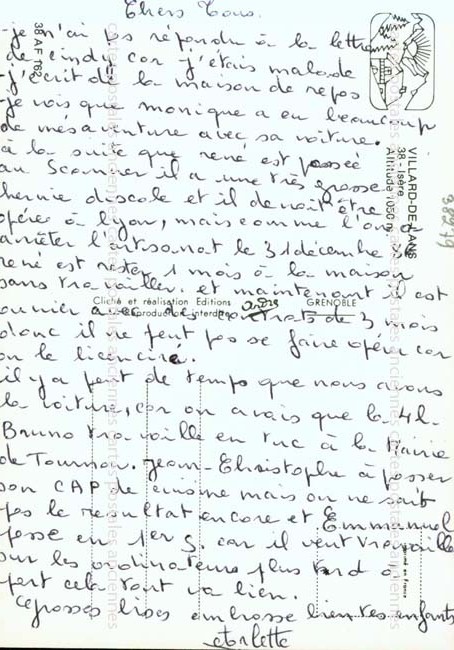 Chers Tous.
je n'ai ps répondu à la lettre
de cindy car j'étais malade
j'écrit de la maison de repos
je vois que monique a eu beaucoup
de mésaventure avec sa voiture.
à la suite que rené est passeé
au Scanner il a une très grosse
hernie discale et il devait être
opéré à Lyon, mais comme l'on a
arrêter l'artisanat le 31 décembre
rené est rester 1 mois à la maison
sans travailler. et maintenant il est
ouvrier avec des contrats de 3 mois
donc il ne peut pas se faire opérer car
on le licencié.
il y a peut de temps que nous avons
la voiture, car on avais que la 4L.
Bruno travaille en TUC à la Mairie
de Tournon. Jean-Christophe à passer
son CAP de cuisine mais on ne sait
pas le résultat encore et Emmanuel
passe en 1er S. car il veut travailler
sur les ordinateurs plus tard à
part cela tout va bien.
grosses bises embrasse bien tes enfants
Arlette
38 AF 162
VILLARD-DE-LANS
38 - Isère
Altitude 1050 m
Cliché et réalisation Editions André GRENOBLE
Reproduction interdite